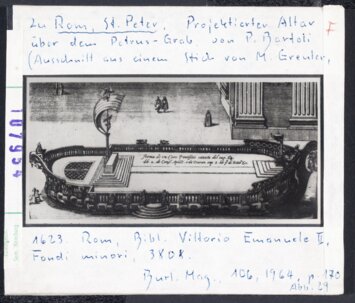 Zu Rom, St. Peter. Projektierter Altar
über dem Petrus-Grab von P. Bartoli
(Ausschnitt aus einem Stich von M. Greuter,
F
107954
1623. Rom, Bibl. Vittorio Emanuele II,
Fondi minori, 3808.
Burl. Mag. 106, 1964, p. 170
Abb. 29